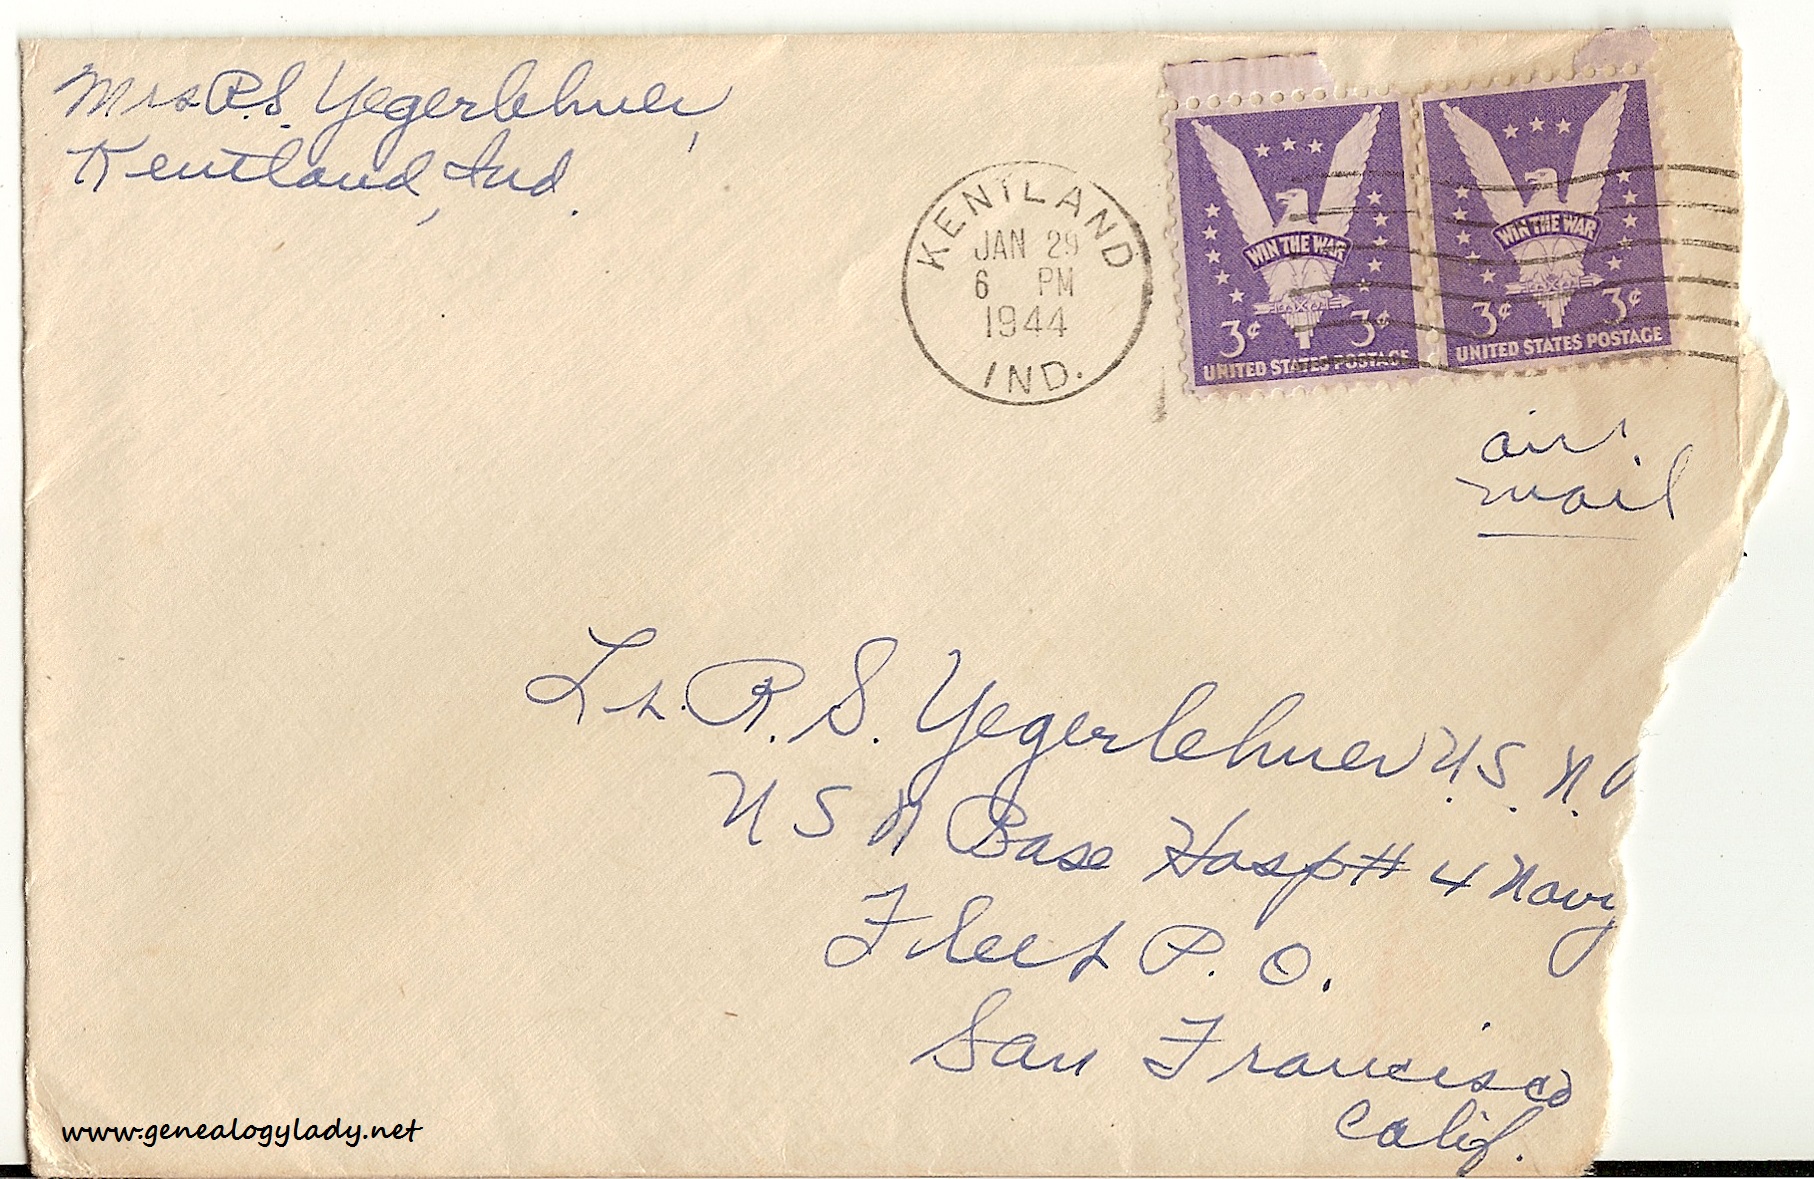 Mrs R.S. Yegerlehner,
Kentland, Ind.
KENTLAND
JAN 29
6 PM
1944
IND.
WIN THE WAR
3¢ 3¢
UNITED STATES POSTAGE
WIN THE WAR
3¢ 3¢
UNITED STATES POSTAGE
air
mail
Lt. R. S. Yegerlehner U.S.N.
U S N Base Hosp # 4 Navy
Fleet P. O.
San Francisco
Calif.
www.genealogylady.net